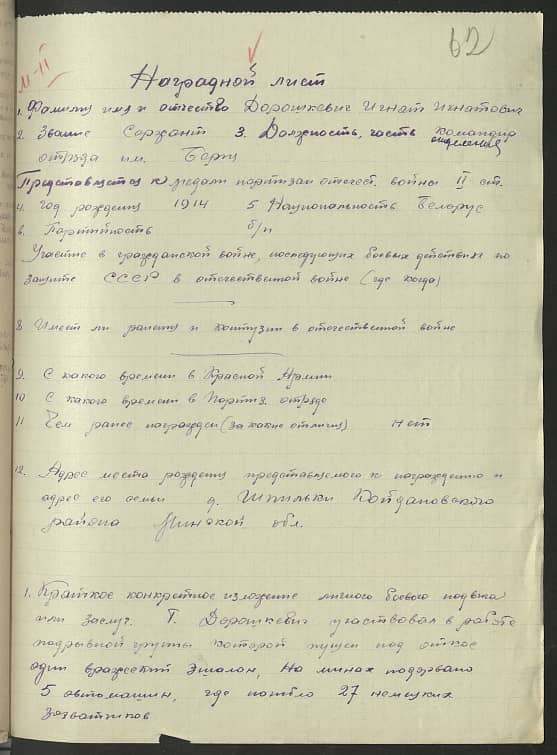 62
11-11
Наградной лист
1. Фамилия имя и отчество Дорошкевич Игнат Игнатович
2. Звание Сержант 3. Должность, часть командир
отделения
отряда им. Берия
Представляется к медали партизан отечест. войны II ст.
4. Год рождения 1914 5 Национальность Белорус
6. Партийность б/п
Участие в гражданской войне, последующих боевых действиях по
защите СССР в отечественной войне (где когда)
8 Имеет ли ранения и контузии в отечественной войне
9. С какого времени в Красной Армии
10 С какого времени в Партиз. отряде
11 Чем ранее награжден (за какие отличия) нет
12. Адрес места рождения представляемого к награждению и
адрес его семьи д. Шпильки Койдановского
района Минской обл.
1. Краткое конкретное изложение личного боевого подвига
или заслуг. Т. Дорошкевич участвовал в работе
подрывной группы которой пущен под откос
один вражеский эшалон, На минах подорвано
5 автомашин, где погибло 27 немецких
захватчиков